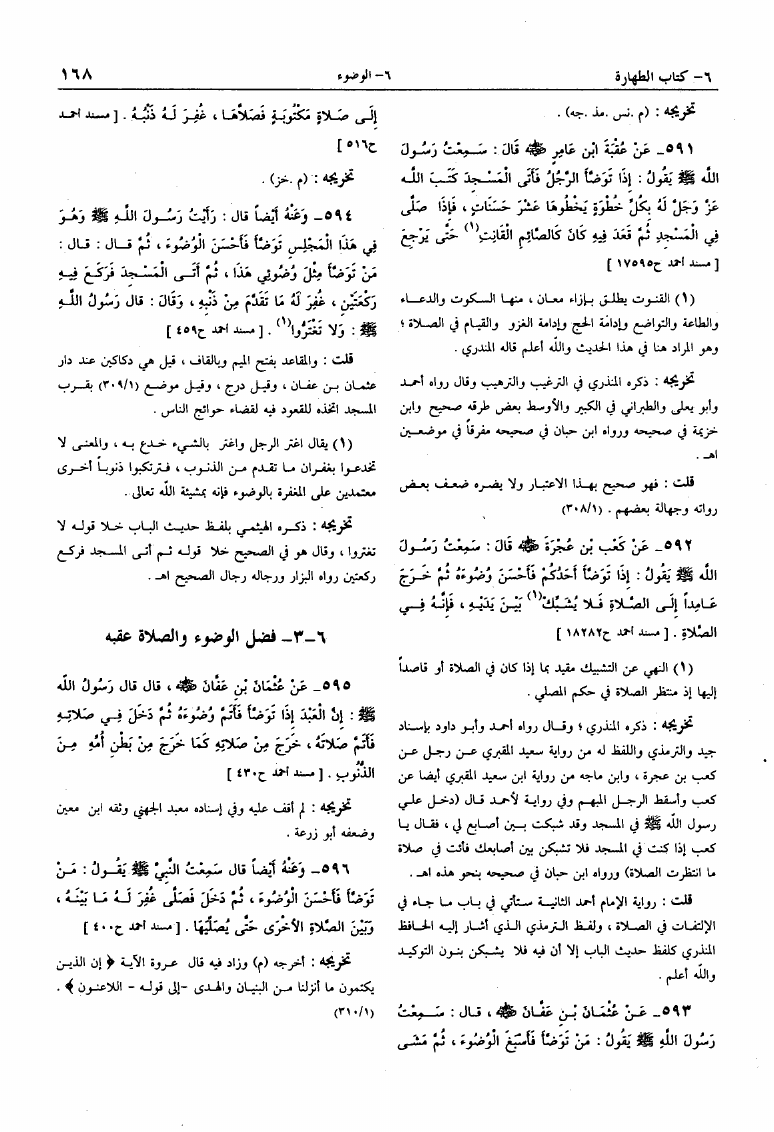 ٦- كتاب الطهارة
٦- الوضوء
١٦٨
تخريجه : (م .نس .مذ .جه) .
٥٩١- عَنْ عُقْبَةَ ابْنِ عَامِرٍ ﷺ قَالَ : سَمِعْتُ رَسُولَ
اللَّه ﷺ يَقُولُ : إِذَا تَوَضَّأَ الرَّجُلُ فَأَتَى الْمَسْجِدَ كَتَبَ اللَّه
عَزَّ وَجَلَّ لَهُ بِكُلِّ خُطْوَةٍ يَخْطُوهَا عَشْرَ حَسَنَاتٍ ، فَإِذَا صَلَّى
فِي الْمَسْجِدِ ثُمَّ قَعَدَ فِيهِ كَانَ كَالصَّائِمِ الْقَانِتِ(١) حَتَّى يَرْجِعَ
[مسند احمد ح١٧٥٩٥]
(١) القنوت يطلق بإزاء معان ، منها السكوت والدعاء
والطاعة والتواضع وإدامة الحج وإدامة الغزو والقيام في الصلاة ؛
وهو المراد هنا في هذا الحديث والله أعلم قاله المنذري .
تخريجه : ذكره المنذري في الترغيب والترهيب وقال رواه أحمد
وأبو يعلى والطبراني في الكبير والأوسط بعض طرقه صحيح وابن
خزيمة في صحيحه ورواه ابن حبان في صحيحه مفرقاً في موضعين
اهـ .
قلت : فهو صحيح بهذا الاعتبار ولا يضره ضعف بعض
رواته وجهالة بعضهم . (٣٠٨/١)
٥٩٢- عَنْ كَعْبِ بْنِ عُجْرَةَ ﷺ قَالَ : سَمِعْتُ رَسُولَ
اللَّه ﷺ يَقُولُ : إِذَا تَوَضَّأَ أَحَدُكُمْ فَأَحْسَنَ وُضُوءَهُ ثُمَّ خَرَجَ
عَامِداً إِلَى الصَّلاةِ فَلا يُشَبِّكْ(١) بَيْنَ يَدَيْهِ ، فَإِنَّهُ فِي
الصَّلاةِ . [مسند احمد ح١٨٢٨٢]
(١) النهي عن التشبيك مقيد بما إذا كان في الصلاة أو قاصداً
إليها إذ منتظر الصلاة في حكم المصلي .
تخريجه : ذكره المنذري ؛ وقال رواه أحمد وأبو داود بإسناد
جيد والترمذي واللفظ له من رواية سعيد المقبري عن رجل عن
كعب بن عجرة ، وابن ماجه من رواية ابن سعيد المقبري أيضا عن
كعب وأسقط الرجل المبهم وفي رواية لأحمد قال (دخل علي
رسول اللَّه ﷺ في المسجد وقد شبكت بين أصابع لي ، فقال يا
كعب إذا كنت في المسجد فلا تشبكن بين أصابعك فأنت في صلاة
ما انتظرت الصلاة) ورواه ابن حبان في صحيحه بنحو هذه اهـ .
قلت : رواية الإمام أحمد الثانية ستأتي في باب ما جاء في
الإلتفات في الصلاة ، ولفظ الترمذي الذي أشار إليه الحافظ
المنذري كلفظ حديث الباب إلا أن فيه فلا يشبكن بنون التوكيد
والله أعلم .
٥٩٣- عَنْ عُثْمَانَ بْنِ عَفَّانَ ﷺ ، قال : سَمِعْتُ
رَسُولَ اللَّهِ ﷺ يَقُولُ : مَنْ تَوَضَّأَ فَأَسْبَغَ الْوُضُوءَ ، ثُمَّ مَشَى
إِلَى صَلاةٍ مَكْتُوبَةٍ فَصَلاَّهَا ، غُفِرَ لَهُ ذَنْبُهُ . [مسند احمد
ح٥١٦]
تخريجه : (م .خز) .
٥٩٤- وَعَنْهُ أَيْضاً قال : رَأَيْتُ رَسُولَ اللَّهِ ﷺ وَهُوَ
فِي هَذَا الْمَجْلِسِ تَوَضَّأَ فَأَحْسَنَ الْوُضُوءَ ، ثُمَّ قَال : قال :
مَنْ تَوَضَّأَ مِثْلَ وُضُوئِي هَذَا ، ثُمَّ أَتَى الْمَسْجِدَ فَرَكَعَ فِيهِ
رَكْعَتَيْنِ ، غُفِرَ لَهُ مَا تَقَدَّمَ مِنْ ذَنْبِهِ ، وَقَالَ : قال رَسُولُ اللَّهِ
ﷺ : وَلا تَغْتَرُّوا(١) . [مسند احمد ح٤٥٩]
قلت : والمقاعد بفتح الميم وبالقاف ، قيل هي دكاكين عند دار
عثمان بن عفان ، وقيل درج ، وقيل موضع (٣٠٩/١) بقرب
المسجد اتخذه للقعود فيه لقضاء حوائج الناس .
(١) يقال اغتر الرجل واغتر بالشيء خدع به ، والمعنى لا
تخدعوا بغفران ما تقدم من الذنوب ، فترتكبوا ذنوباً أخرى
معتمدين على المغفرة بالوضوء فإنه بمشيئة اللَّه تعالى .
تخريجه : ذكره الهيثمي بلفظ حديث الباب خلا قوله لا
تغتروا ، وقال هو في الصحيح خلا قوله ثم أتى المسجد فركع
ركعتين رواه البزار ورجاله رجال الصحيح اهـ .
٦-٣- فضل الوضوء والصلاة عقبه
٥٩٥- عَنْ عُثْمَانَ بْنِ عَفَّانَ ﷺ ، قال قال رَسُولُ اللَّه
ﷺ : إِنَّ الْعَبْدَ إِذَا تَوَضَّأَ فَأَتَمَّ وُضُوءَهُ ثُمَّ دَخَلَ فِي صَلاتِهِ
فَأَتَمَّ صَلاتَهُ ، خَرَجَ مِنْ صَلاتِهِ كَمَا خَرَجَ مِنْ بَطْنِ أُمِّهِ مِنَ
الذُّنُوبِ . [مسند احمد ح٤٣٠]
تخريجه : لم أقف عليه وفي إسناده معبد الجهني وثقه ابن معين
وضعفه أبو زرعة .
٥٩٦- وَعَنْهُ أَيْضاً قال سَمِعْتُ النَّبِيَّ ﷺ يَقُولُ : مَنْ
تَوَضَّأَ فَأَحْسَنَ الْوُضُوءَ ، ثُمَّ دَخَلَ فَصَلَّى غُفِرَ لَهُ مَا بَيْنَهُ ،
وَبَيْنَ الصَّلاةِ الأُخْرَى حَتَّى يُصَلِّيَهَا . [مسند احمد ح٤٠٠]
تخريجه : أخرجه (م) وزاد فيه قال عروة الآية ﴿ إن الذين
يكتمون ما أنزلنا من البنيان والهدى -إلى قوله- اللاعنون ﴾ .
(٣١٠/١)